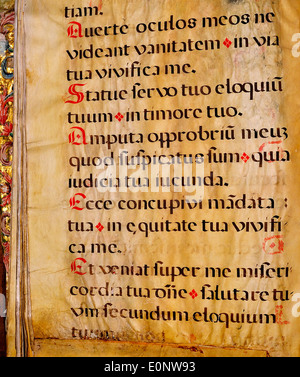 tiam.
Averte oculos meos ne
videant vanitatem in via
tua vivifica me.
Statue servo tuo eloquiū
tuum in timore tuo.
Amputa opprobriū meuz
quod suspicatus sum quia
iudicia tua iucunda.
Ecce concupivi mādata
tua in equitate tua vivifi
ca me.
Et veniat super me miseri
cordia tua dn̄e salutare tu
vm secundum eloquium
tuum
alamy
E0NW93
www.alamy.com